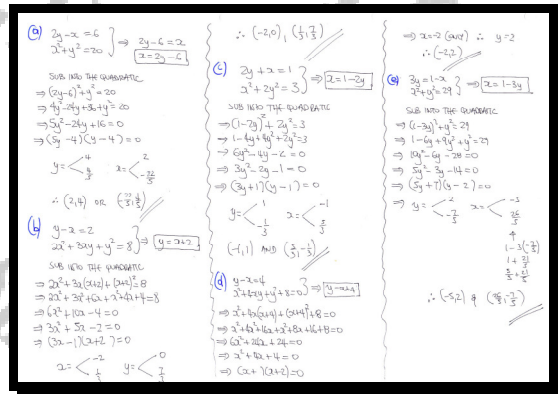 (a) 2y-x=6
x²+y²=20 } ⇒ 2y-6=x
x=2y-6
SUB INTO THE QUADRATIC
⇒ (2y-6)²+y²=20
⇒ 4y²-24y+36+y²=20
⇒ 5y²-24y+16=0
⇒ (5y-4)(y-4)=0
y= < 4 4/5 x= < 2 -22/5
∴ (2,4) OR (-22/5, 4/5)
(b) y-x=2
2x²+3xy+y²=8 } ⇒ y=x+2
SUB INTO THE QUADRATIC
⇒ 2x²+3x(x+2)+(x+2)²=8
⇒ 2x²+3x²+6x+x²+4x+4=8
⇒ 6x²+10x-4=0
⇒ 3x²+5x-2=0
⇒ (3x-1)(x+2)=0
x= < -2 1/3 y= < 0 7/3
∴ (-2,0), (1/3, 7/3)
(c) 2y+x=1
x²+2y²=3 } ⇒ x=1-2y
SUB INTO THE QUADRATIC
⇒ (1-2y)²+2y²=3
⇒ 1-4y+4y²+2y²=3
⇒ 6y²-4y-2=0
⇒ 3y²-2y-1=0
⇒ (3y+1)(y-1)=0
y= < 1 -1/3 x= < -1 5/3
(-1,1) AND (5/3, -1/3)
(d) y-x=4
x²+4xy+y²+8=0 } ⇒ y=x+4
⇒ x²+4x(x+4)+(x+4)²+8=0
⇒ x²+4x²+16x+x²+8x+16+8=0
⇒ 6x²+24x+24=0
⇒ x²+4x+4=0
⇒ (x+ )(x+2)=0
⇒ x=-2 ∴ y=2
∴ (-2,2)
(e) 3y=1-x
x²+y²=29 } ⇒ x=1-3y
SUB INTO THE QUADRATIC
⇒ (1-3y)²+y²=29
⇒ 1-6y+9y²+y²=29
⇒ 10y²-6y-28=0
⇒ 5y²-3y-14=0
⇒ (5y+7)(y-2)=0
⇒ y= < 2 -7/5 x= < -5 26/5
1-3(-7/5)
1+21/5
5/5+21/5
∴ (-5,2) & (26/5, -7/5)